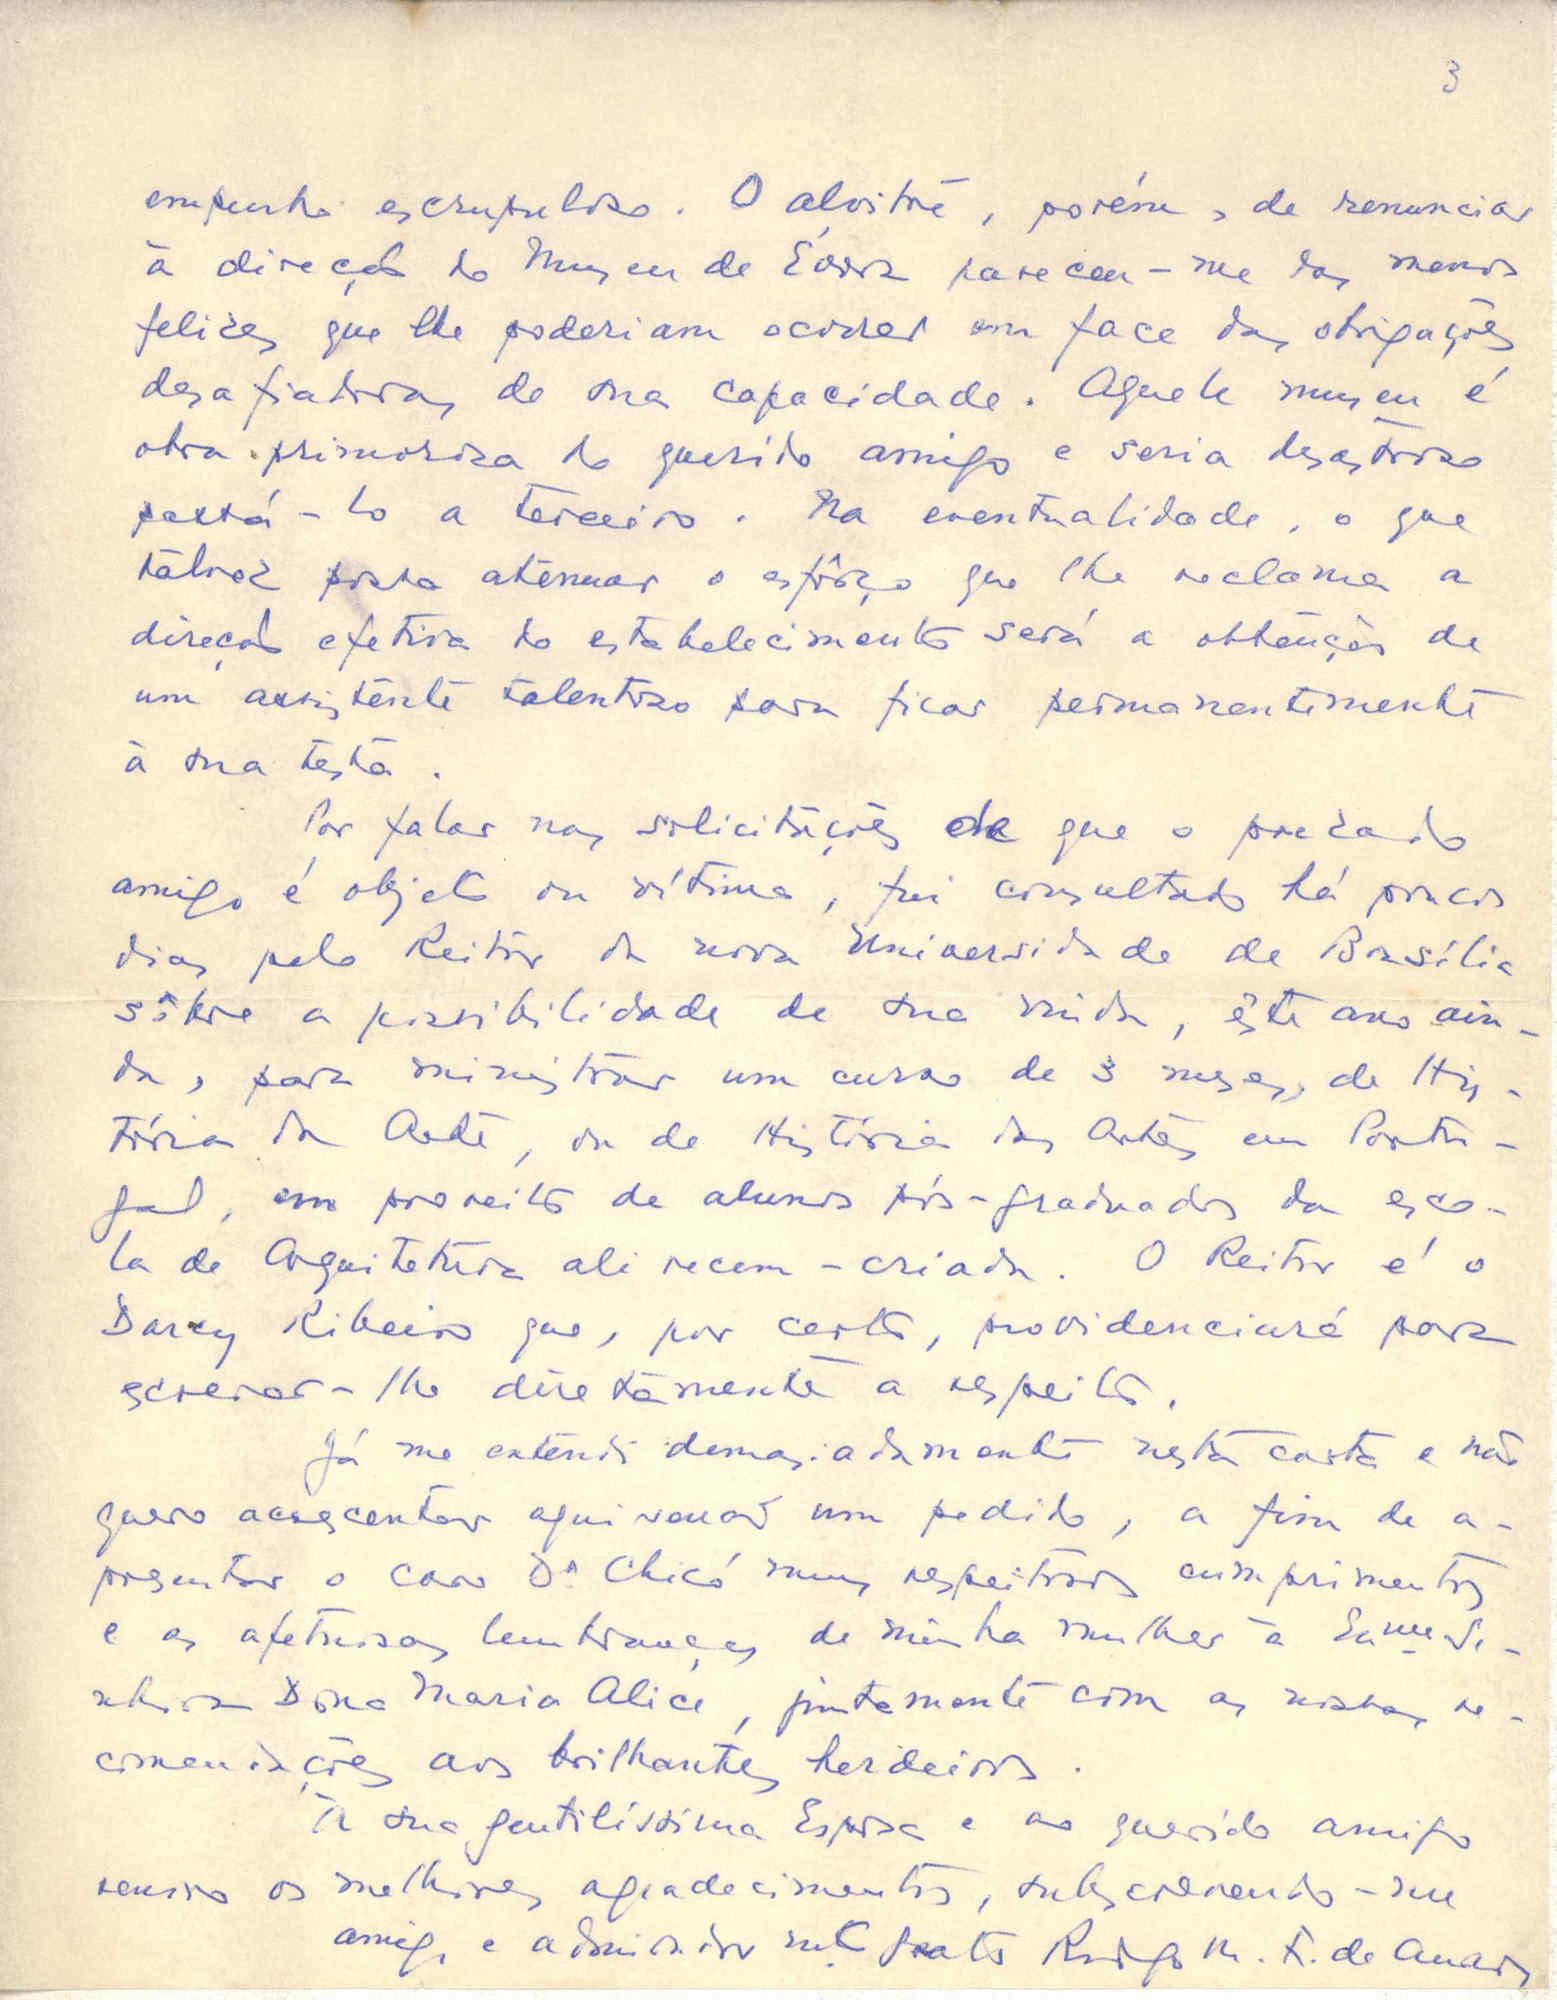 3
empenho escrupuloso. O alvitre, porém, de renunciar
à direção do Museu de Évora pareceu-me dos menos
felizes que lhe poderiam ocorrer em face das obrigações
desafiadoras de sua capacidade. Aquele museu é
obra primorosa do querido amigo e seria desastroso
passá-lo a terceiro. Na eventualidade, o que
talvez possa atenuar o esfôrço que lhe reclama a
direção efetiva do estabelecimento será a obtenção de
um assistente talentoso para ficar permanentemente
à sua testa.
Por falar nas solicitações de que o prezado
amigo é objeto ou vítima, fui consultado há poucos
dias pelo Reitor da nova Universidade de Brasília
sôbre a possibilidade de sua vinda, êste ano ain-
da, para ministrar um curso de 3 meses, de His-
tória da Arte, ou de História das Artes em Portu-
gal, em proveito de alunos pós-graduados da esco-
la de Arquitetura ali recem-criada. O Reitor é o
Darcy Ribeiro que, por certo, providenciará para
escrever-lhe diretamente a respeito.
Já me extendi demasiadamente nesta carta e não
quero acrescentar aqui senão um pedido, a fim de a-
presentar o caro Dr. Chicó meus respeitosos cumprimentos
e as afetuosas lembranças de minha mulher à Exma. Se-
nhora Dona Maria Alice, juntamente com as nossas re-
comendações aos brilhantes herdeiros.
À sua gentilíssima Esposa e ao querido amigo
renovo os melhores agradecimentos, subscrevendo-me
amigo e admirador mto. grato Rodrigo M. F. de Andrade